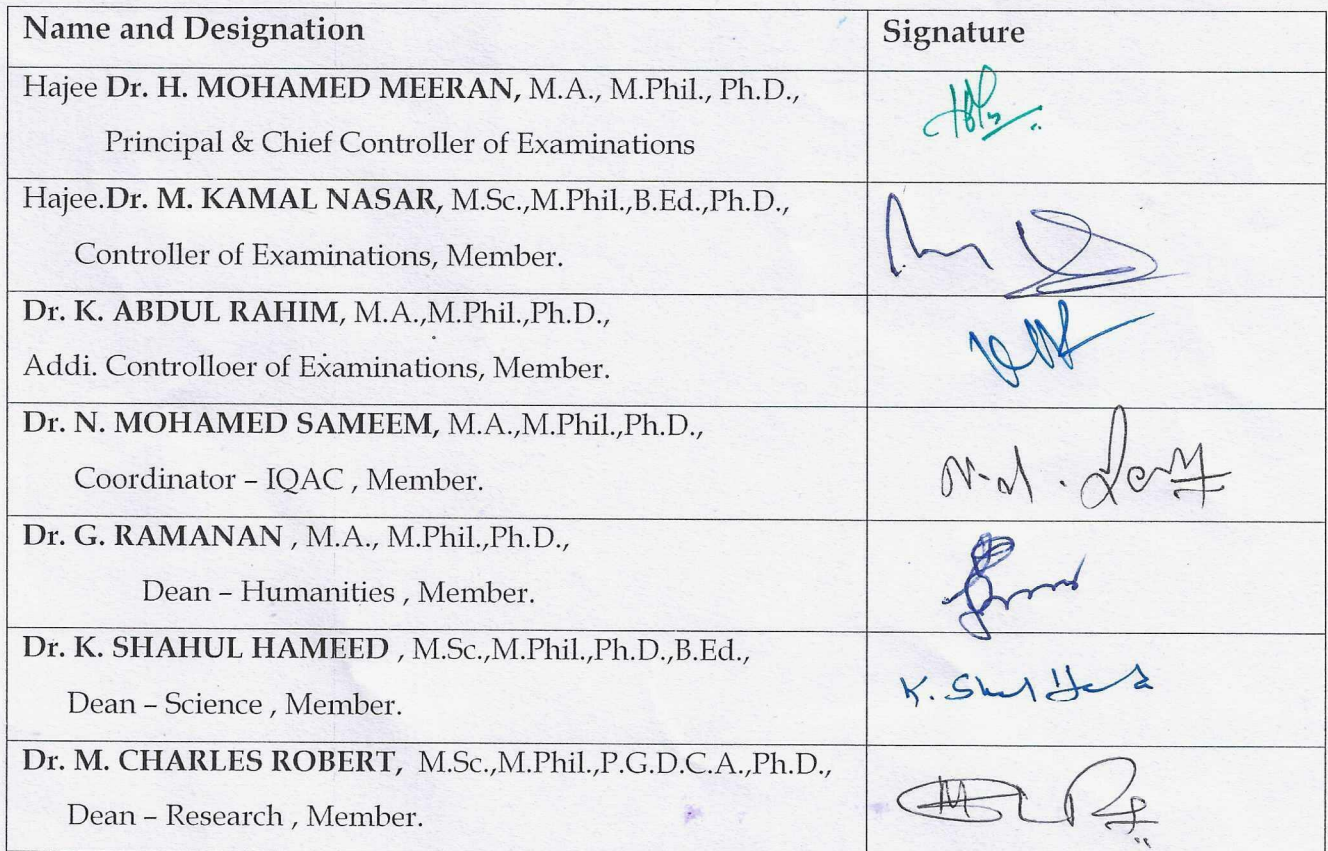 Name and Designation Signature
Hajee Dr. H. MOHAMED MEERAN, M.A., M.Phil., Ph.D.,
Principal & Chief Controller of Examinations
Hajee.Dr. M. KAMAL NASAR, M.Sc.,M.Phil.,B.Ed.,Ph.D.,
Controller of Examinations, Member.
Dr. K. ABDUL RAHIM, M.A.,M.Phil.,Ph.D.,
Addi. Controlloer of Examinations, Member.
Dr. N. MOHAMED SAMEEM, M.A.,M.Phil.,Ph.D.,
Coordinator – IQAC , Member.
Dr. G. RAMANAN , M.A., M.Phil.,Ph.D.,
Dean – Humanities , Member.
Dr. K. SHAHUL HAMEED , M.Sc.,M.Phil.,Ph.D.,B.Ed.,
K.
Dean – Science , Member.
Dr. M. CHARLES ROBERT, M.Sc.,M.Phil.,P.G.D.C.A.,Ph.D.,
Dean – Research , Member.